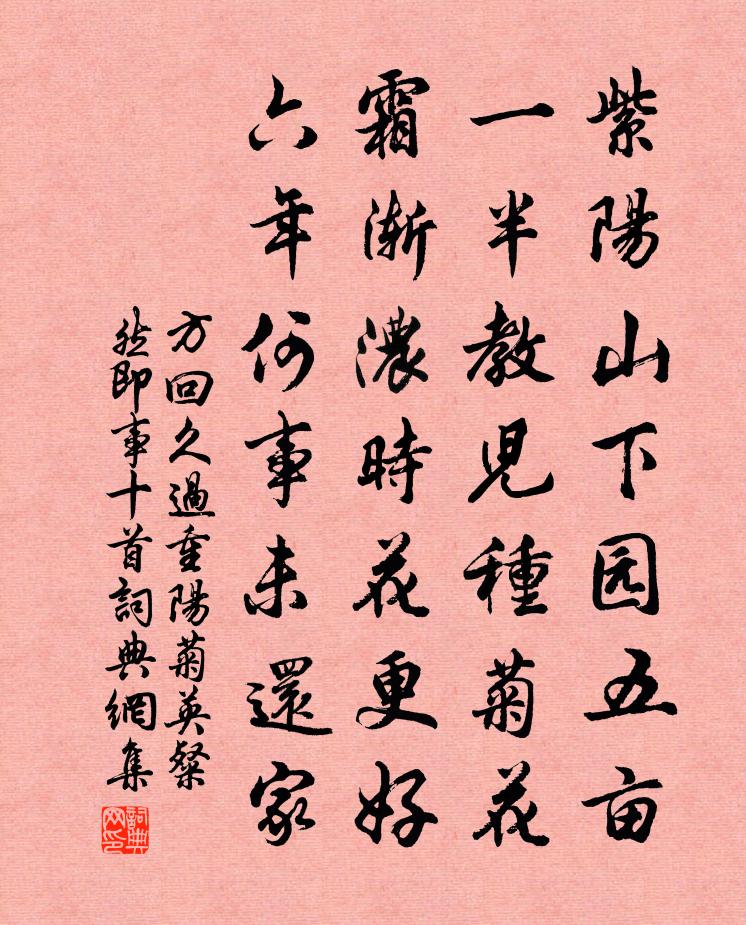 紫陽山下园五亩
一半教児種菊花
霜漸濃時花更好
六年何事未還家
方回久過重陽菊英粲
然即事十首詞典網集
詞典网印